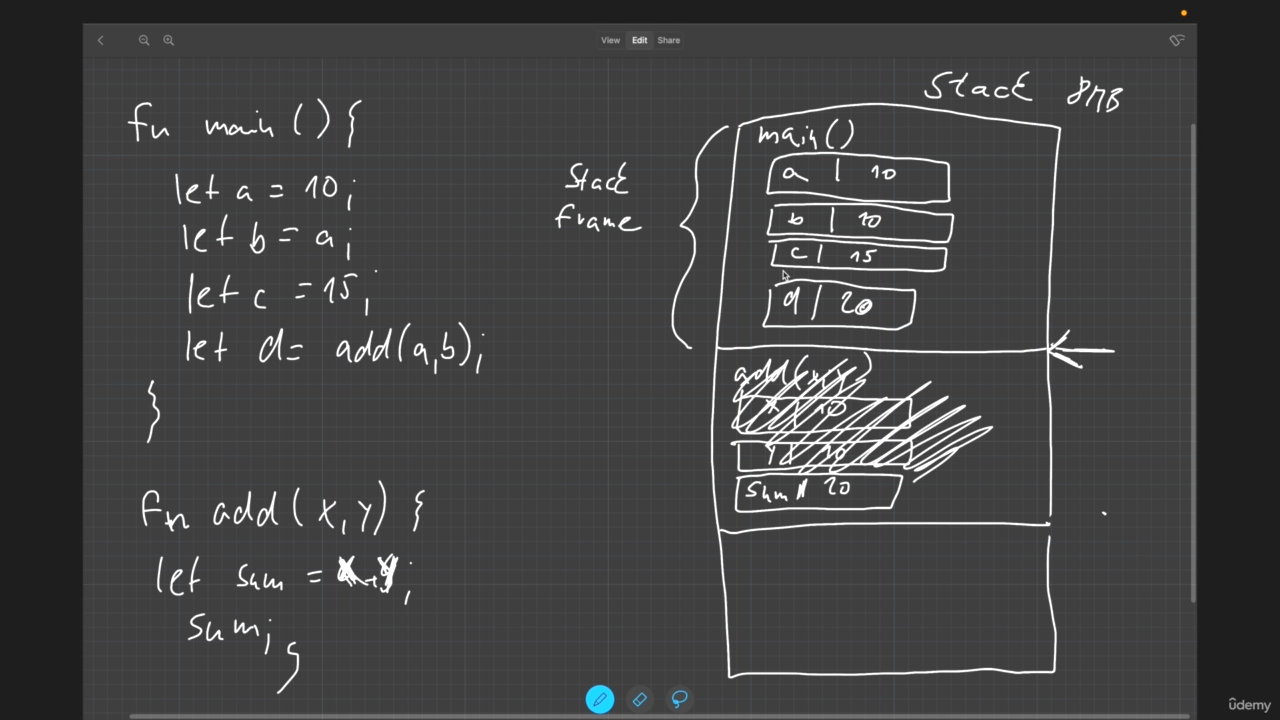 View Edit Share
fn main () {
let a = 10;
let b = a;
let c = 15;
let d = add(a,b);
}
fn add( x,y) {
let sum = x+y;
sum;
}
Stack 8MB
Stack
frame
main()
a | 10
b | 10
c | 15
d | 20
add(x,y)
x | 10
y | 10
sum | 20
udemy